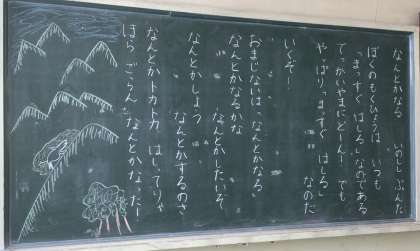 なんとかなる　いのしし ぶんた
ぼくのもくひょうは いつも
「まっすぐ はしる」なのである
でっかいやまにどーん！ でも
やっぱり「まっすぐ はしる」なのだ
いくぞー！
おまじないは、「なんとかなる」
なんとかなるかな
なんとかしたいぞ
なんとかしよう
なんとかするのさ
なんとかトカトカ はしってりゃ
ほら ごらん なんとかなったー！